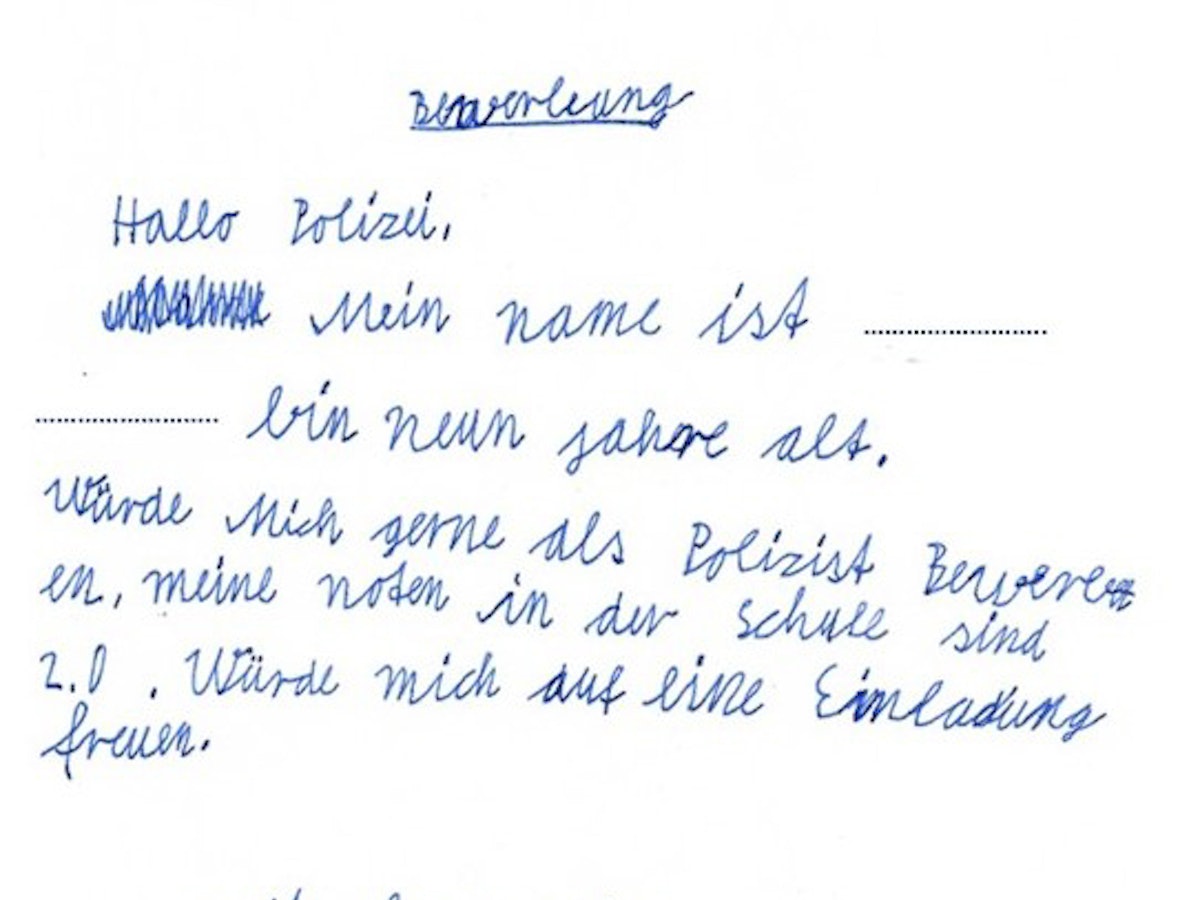 Bewerbung
Hallo Polizei,
Mein name ist ..............
.............. bin neun jahre alt.
Würde Mich gerne als Polizist Bewerb
en, meine noten in der Schule sind
2.0 . Würde mich auf eine Einladung
freuen.